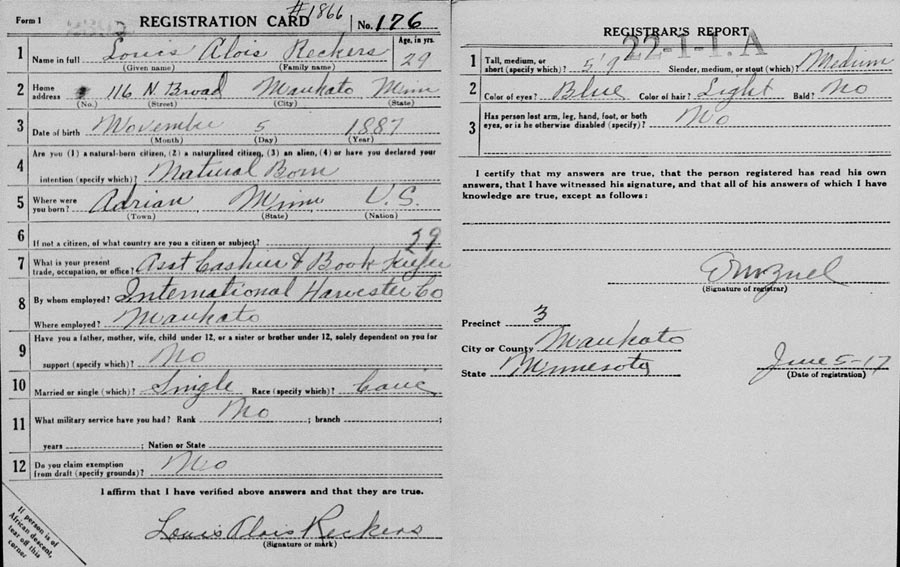 Form 1 REGISTRATION CARD #1866 No. 176
1 Name in full Louis Alois Reckers Age, in yrs. 29
(Given name) (Family name)
2 Home address 116 N. Broad Mankato Minn
(No.) (Street) (City) (State)
3 Date of birth November 5 1887
(Month) (Day) (Year)
4 Are you (1) a natural-born citizen, (2) a naturalized citizen, (3) an alien, (4) or have you declared your
intention (specify which)? Natural Born
5 Where were you born? Adrian Minn U.S.
(Town) (State) (Nation)
6 If not a citizen, of what country are you a citizen or subject? 29
7 What is your present trade, occupation, or office? Asst Cashier & Book Keeper
8 By whom employed? International Harvester Co
Where employed? Mankato
9 Have you a father, mother, wife, child under 12, or a sister or brother under 12, solely dependent on you for
support (specify which)? No
10 Married or single (which)? Single Race (specify which)? Cauc
11 What military service have you had? Rank No ; branch ;
years ; Nation or State
12 Do you claim exemption from draft (specify grounds)? No
I affirm that I have verified above answers and that they are true.
Louis Alois Reckers
(Signature or mark)
If person is of
African descent,
tear off this
corner
REGISTRAR'S REPORT
22-1-1.A
1 Tall, medium, or short (specify which)? 5'9 Slender, medium, or stout (which)? Medium
2 Color of eyes? Blue Color of hair? Light Bald? No
3 Has person lost arm, leg, hand, foot, or both
eyes, or is he otherwise disabled (specify)? No
I certify that my answers are true, that the person registered has read his own
answers, that I have witnessed his signature, and that all of his answers of which I have
knowledge are true, except as follows:
(Signature of registrar)
Precinct 3
City or County Mankato
State Minnesota June 5-17
(Date of registration)